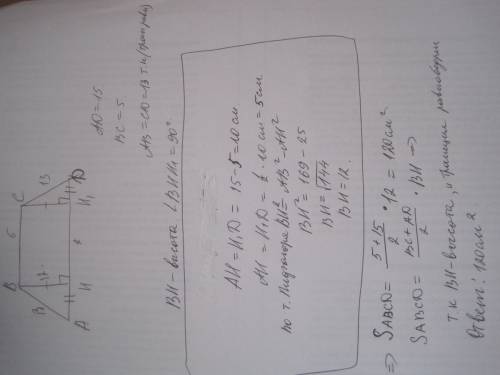 B
5
C
13
12
13
A
H
H₁
D
AD = 15
BC = 5.
AB = CD = 13 т.к
BH - высота ∠BHH₁ = 90°
AH = H₁D = 15 - 5 = 10 см
AH = H₁D = ½ · 10 см = 5 см.
по т. Пифагора BH² = AB² - AH²
BH² = 169 - 25
BH = √144
BH = 12.
⇒ SABCD = 5 + 15 / 2 · 12 = 120 см²
SABCD = BC + AD / 2 · BH ⇒
т.к BH - высота, и трапеция равнобедрен
Ответ: 120 см²